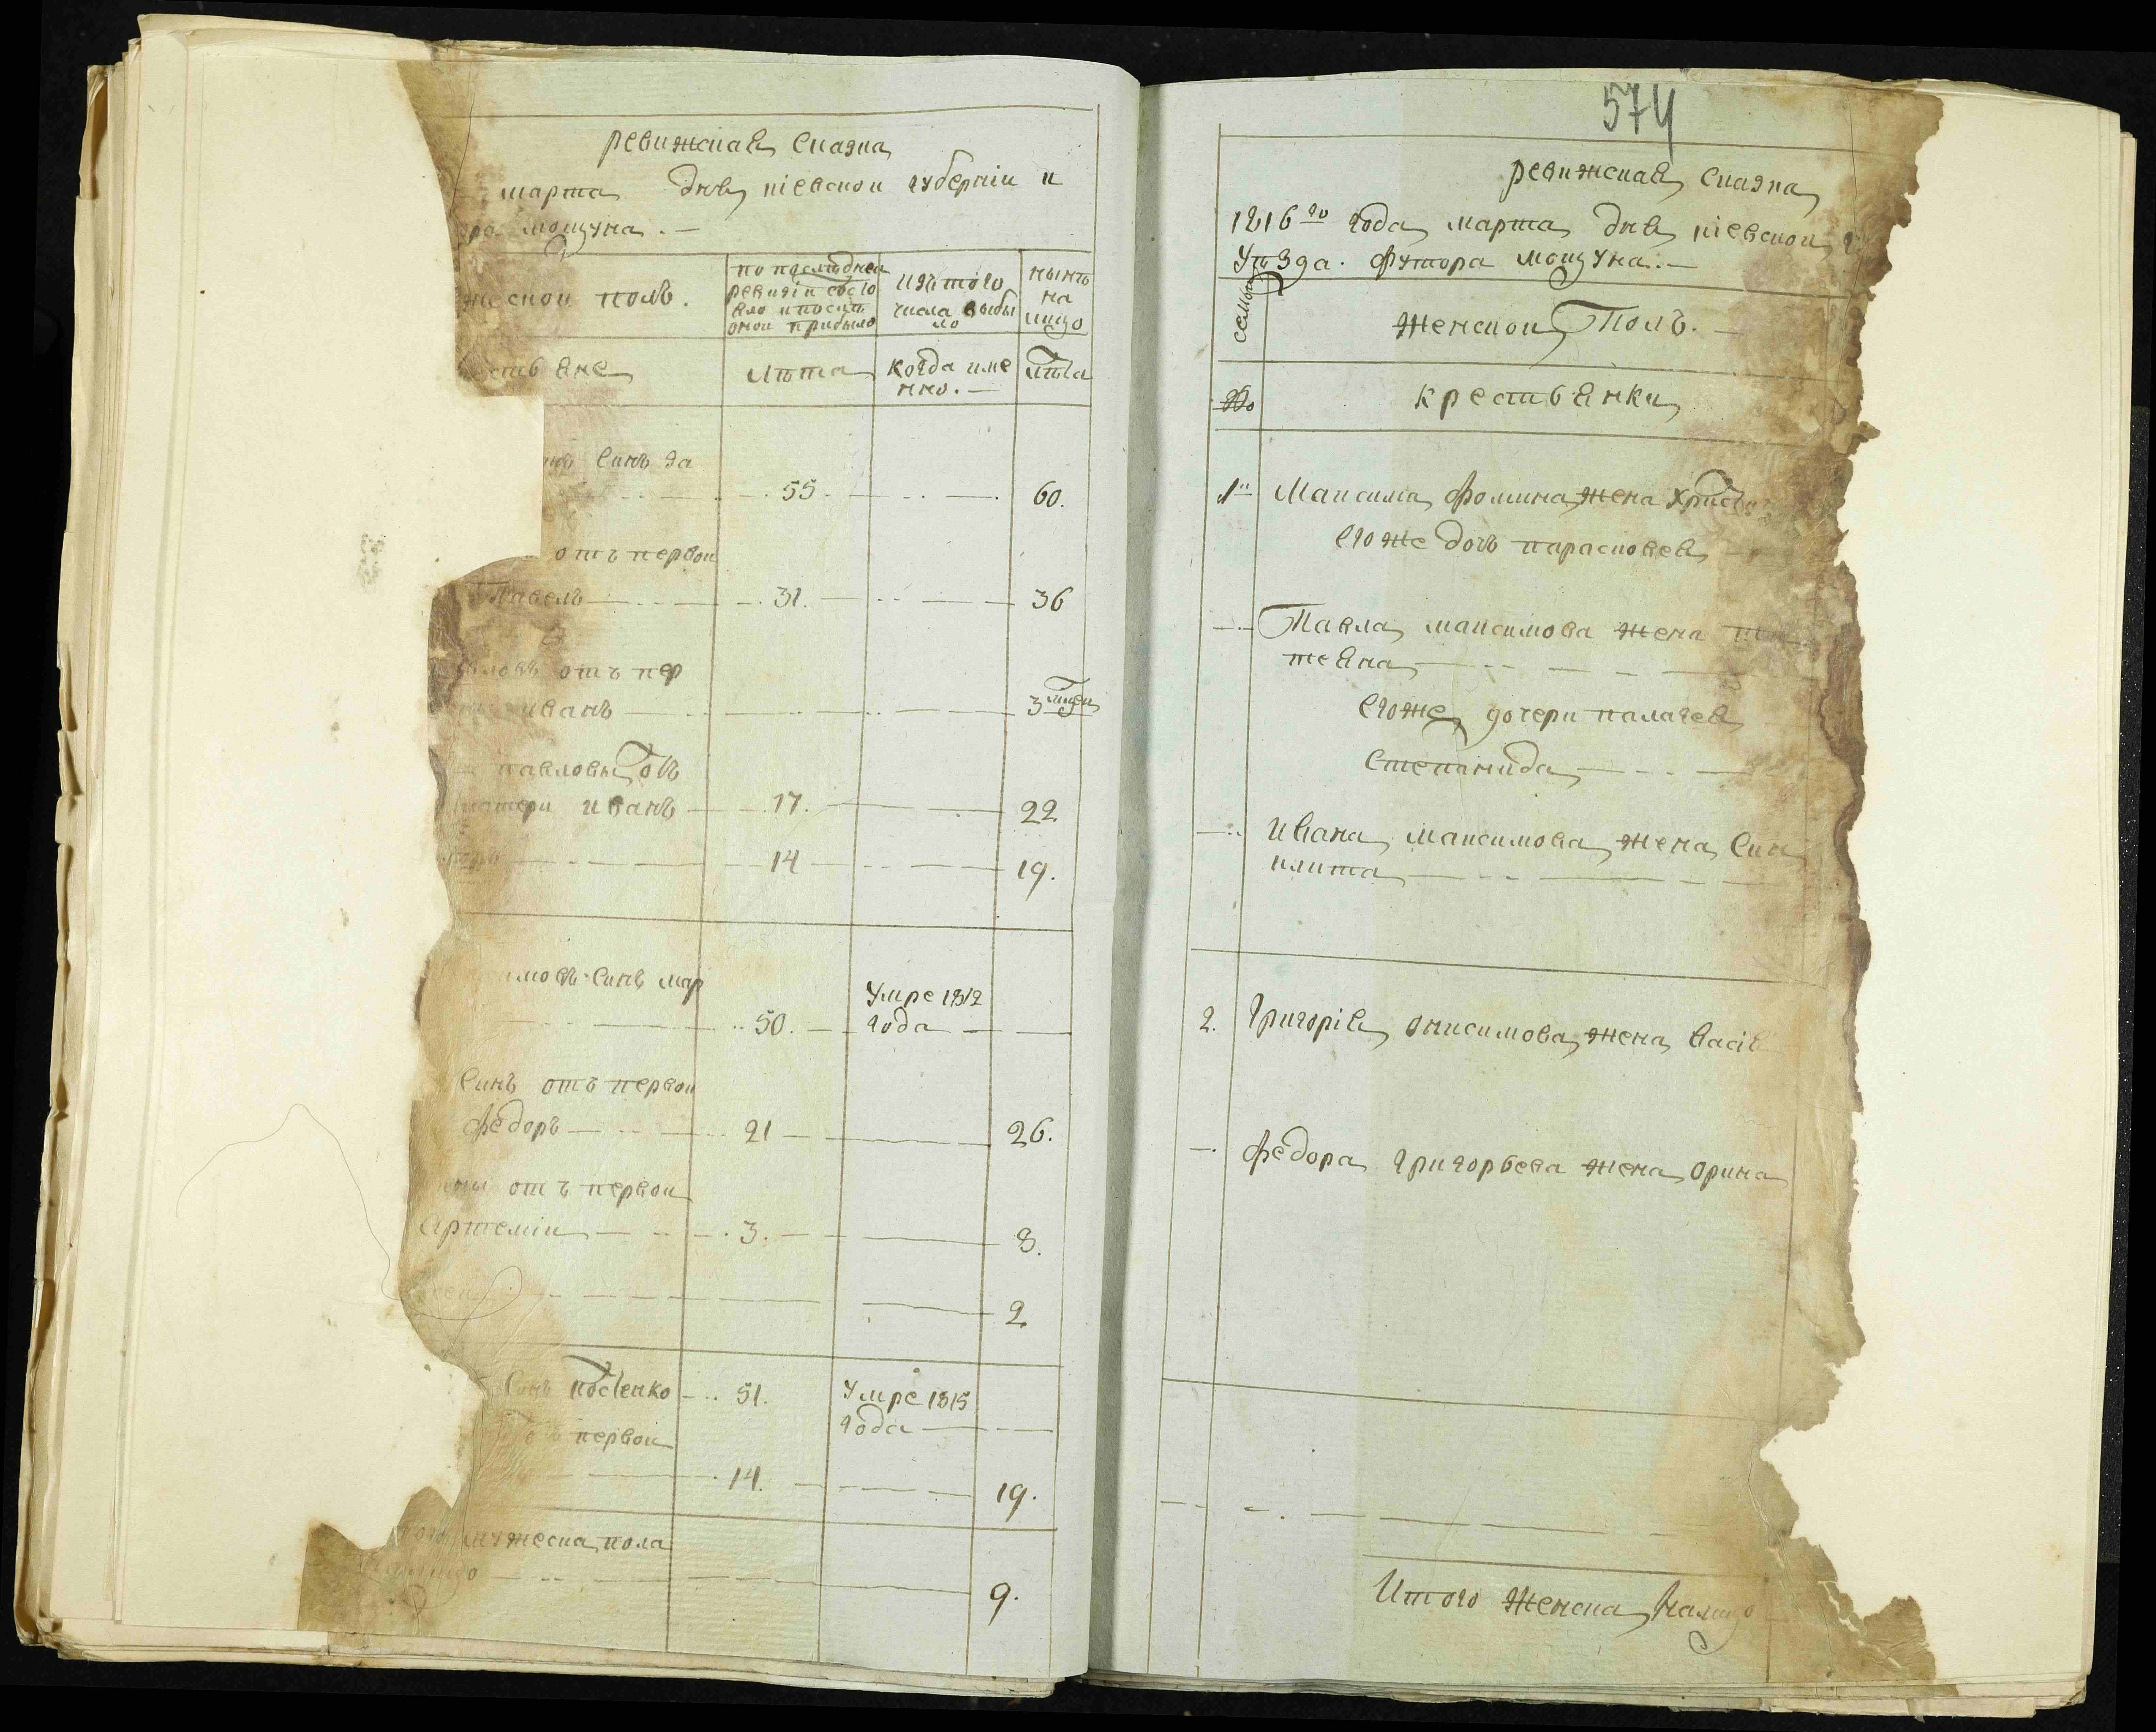 ревижская сказка
марта дня кіевской губерніи и
ра мощуна. —
жеской полъ.
по последней
ревизіи состо
яло и послѣ
оной прибыло
изъ того
числа выбы
ло
нынѣ
на
лицо
стьяне
лѣта
когда име
нно. —
лѣта
синъ за
55. 60.
отъ первой
Павелъ 31. 36
отъ пер
иванъ 3 мцей
павловы отъ
матери иванъ 17. 22
14 19.
имовъ синъ мар
50. умре 1812
года
синъ отъ первой
федоръ 21 26.
отъ первой
артемій 3. 8.
2
синъ костенко 51. умре 1815
года
первой
14. 19.
мужеска пола
налицо 9.
574
ревижская сказка
1816го года марта дня кіевской г
уѣзда. футора мощуна. —
семьи
женской Полъ. —
№
крестьянки
1й Максима фомина жена христи
его же дочь парасковея
Павла максимова жена
тевна
его же дочери палагея
степанида
ивана максимова жена син
клита
2. григорія онисимова жена васи
федора григорьева жена орина
Итого женска налицо